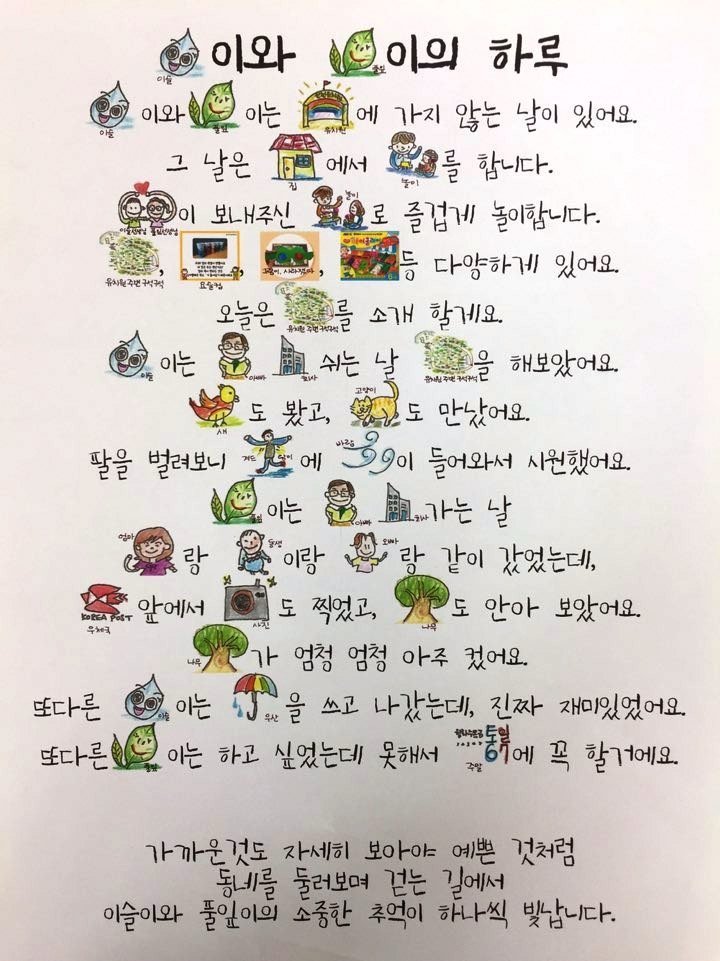 이슬이와 풀잎이의 하루
이슬이와 풀잎이는 유치원에 가지 않는 날이 있어요.
그 날은 집에서 놀이를 합니다.
이슬선생님 풀잎선생님이 보내주신 놀이로 즐겁게 놀이합니다.
유치원 주변 구석구석, 요술컵, 그림이, 사라졌다, 등 다양하게 있어요.
오늘은 유치원 주변 구석구석를 소개 할게요.
이슬이는 아빠 회사 쉬는 날 유치원 주변 구석구석을 해보았어요.
새도 봤고, 고양이도 만났어요.
팔을 벌려보니 겨드랑이에 바람이 들어와서 시원했어요.
풀잎이는 아빠 회사 가는 날
엄마랑 동생이랑 오빠랑 같이 갔었는데,
KOREA POST 우체국 앞에서 사진도 찍었고, 나무도 안아 보았어요.
나무가 엄청 엄청 아주 컸어요.
또다른 이슬이는 우산을 쓰고 나갔는데, 진짜 재미있었어요.
또다른 풀잎이는 하고 싶었는데 못해서 주말에 꼭 할거에요.
가까운것도 자세히 보아야 예쁜 것처럼
동네를 둘러보며 걷는 길에서
이슬이와 풀잎이의 소중한 추억이 하나씩 빛납니다.